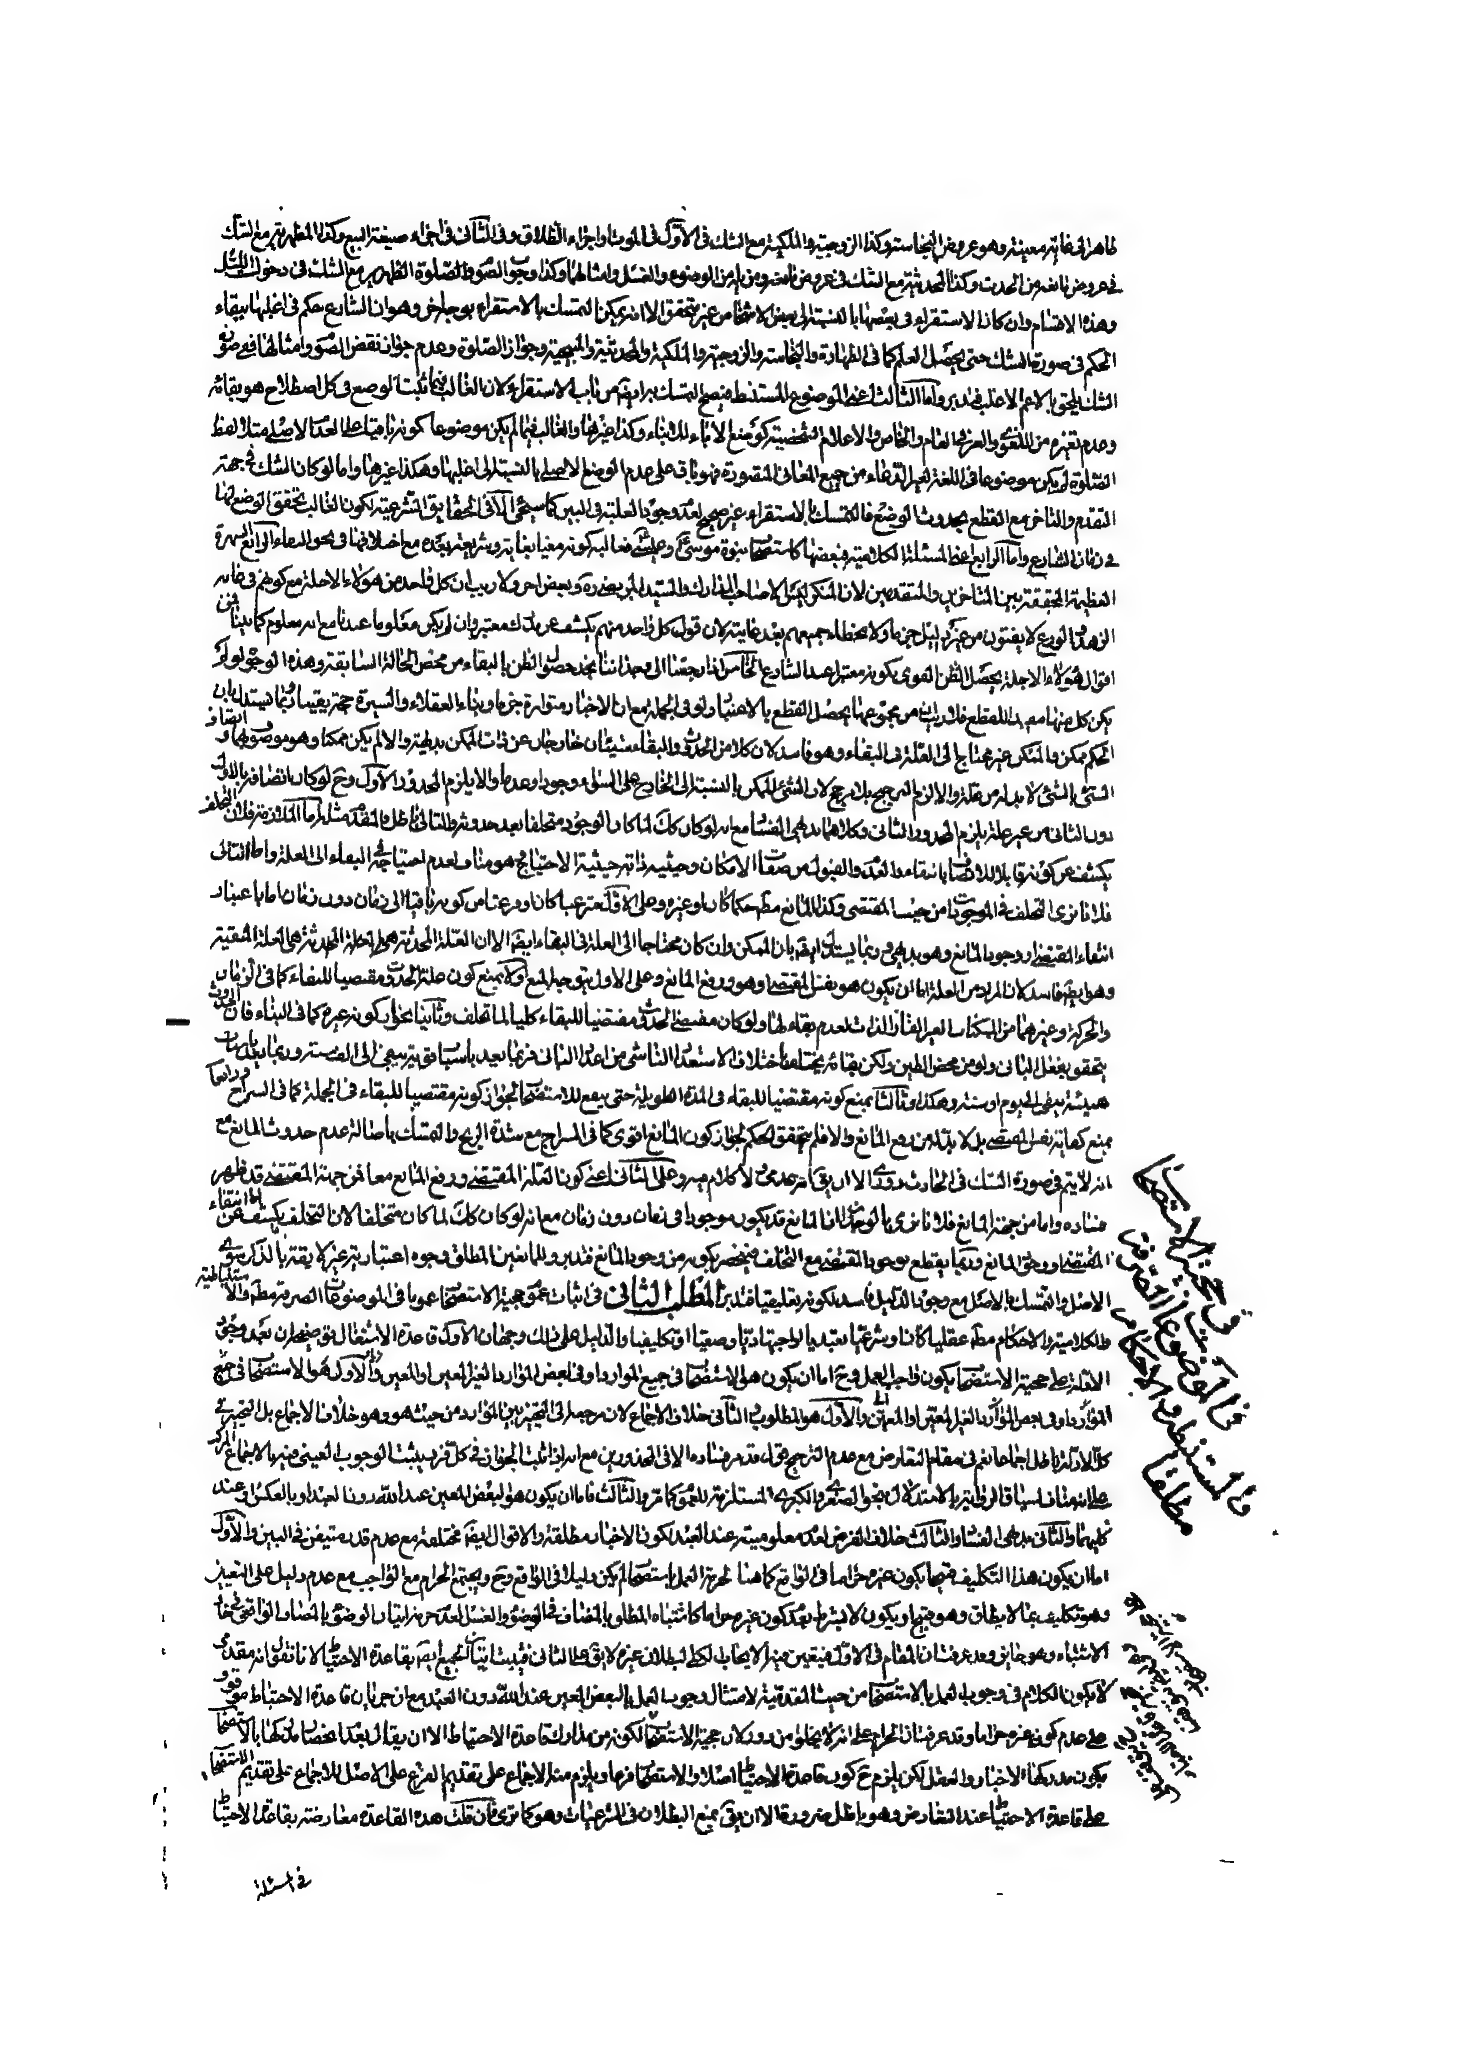 ظاهرا في غاية معينة وهو عروض النجاسة وكذا الزوجية والملكية مع الشك في الأول في الموت واجراء الطلاق وفي الثاني في اجراء صيغة البيع وكذا المطهرية مع الشك
في عروض مانعه من الحدث وكذا المحدثية مع الشك في عروض رافعه ومزيله من الوضوء والغسل وامثالهما وكذا وجوب الصوم والصلوة الظهرية مع الشك في دخول الليل
وهذه الاقسام وان كان الاستقراء في بعضها بالنسبة الى بعض الاشخاص غير متحقق الا انه يمكن التمسك بالاستقراء بوجه اخر وهو ان الشارع حكم في اغلبها ببقاء
الحكم في صورة الشك حتى يحصل العلم كما في الطهارة والنجاسة والزوجية والملكية والمحدثية والمبيحية وجواز الصلوة وعدم جواز نقض الصوم وامثالها ففي صورة
الشك يلحق بالاعم الاغلب فتدبر واما الثالث اعني الموضوع المستنبط فيصح التمسك به ايضا من باب الاستقراء لان الغالب فيما ثبت الوضع في كل اصطلاح هو بقائه
وعدم تغيره من اللغوي والعرفي العام والخاص والاعلام الشخصية كوضع الاباء للابناء وكذا غيرها والغالب فيما لم يكن موضوعا كونه باقيا على العدم الاصلي مثلا لفظ
الصلوة لم يكن موضوعا في اللغة لغير الدعاء من جميع المعاني المتصورة فهو باق على عدم الوضع الاصلي بالنسبة الى اغلبها وهكذا غيرها واما لو كان الشك في جهة
التقدم والتاخر مع القطع بحدوث الوضع فالتمسك بالاستقراء غير صحيح لعدم وجود الغلبة في البين كما سيجئ الا في الحقايق المتشرعية لكون الغالب تحقق الوضع لها
في زمان الشارع واما الرابع اعني المسئلة الكلامية فبعضها كاستصحاب نبوة موسى وعيسى
العظيمة المحققة بين المتاخرين والمتقدمين لان المنكر ليس الا صاحب المدارك والسيد المرتضى ره وبعض اخر ولا ريب ان كل واحد من هؤلاء الاجلة مع كونهم في غاية
الزهد والورع لا يفتون من غير دليل جزما ولا يخطاء جميعهم بعد غايته لان قول كل واحد منهم يكشف عن مدرك معتبر وان لم يكن معلوما عندنا مع انه معلوم كما بينا فمن
اقوال هؤلاء الاجلة يحصل الظن القوي بكونه معتبرا عند الشارع الخامس اذا رجعنا الى وجداننا نجد حصول الظن بالبقاء من محض الحالة السابقة وهذه الوجوه لو لم
يكن كل منها مفيدا للقطع فلا ريب من مجموعها يحصل القطع بالاعتبار ولو في الجملة مع ان الاخبار متواترة جزما وبناء العقلاء والسيرة حجة يقينا وربما يستدل بان
الحكم ممكن والممكن غير محتاج الى العلة في البقاء وهو فاسد لان كلا من الحدوث والبقاء شيئان خارجان عن ذات الممكن بديهة والا لم يكن ممكنا وهو موصوف بهما واتصاف
الشئ بالشئ لا بد له من علة والا لزم الترجيح بلا مرجح لان الشئ الممكن بالنسبة الى الخارج على السواء وجودا وعدما والا يلزم المحذور الاول وح لو كان اتصافه بالاول
دون الثاني من غير علة يلزم المحذور الثاني وكلاهما بديهي الفساد مع انه لو كان كك لما كان الوجود متخلفا بعد حدوثه والتالي باطل والمقدم مثله اما الملازمة فلان التخلف
يكشف عن كونه قابلا للاتصاف بالبقاء والعدم والقبول من صفات الامكان وحيثية ذاته حيثية الاحتياج وهو مناف لعدم احتياجه في البقاء الى العلة واما التالي
فلانا نرى التخلف في الموجودات
انتفاء المقتضي او وجود المانع وهو بديهي وربما يستدل ايضا بان الممكن وان كان محتاجا الى العلة في البقاء ايضا الا ان العلة المحدثة هي العلة المبقية
وهو ايضا فاسد لان المراد من العلة اما ان يكون هو نفس المقتضي او هو ورفع المانع وعلى الاول يتوجه المنع اولا بمنع كون علة الحدوث مقتضيا للبقاء كما في الزمان
والحركة وغيرهما من الممكنات الغير القار الذات لعدم بقاء لها ولو كان مقتضي الحدوث مقتضيا للبقاء كليا لما تخلف وثانيا بجواز كونه غيره كما في البناء فان الحدوث
يتحقق بفعل الباني ولو من محض الطين ولكن بقائه يختلف باختلاف الاستعداد الناشي من اعداد الباني
هيئة يبقى الى يوم او سنة وهكذا وثالثا بمنع كونه مقتضيا للبقاء في المدة الطويلة حتى ينفع للاستصحاب لجواز كونه مقتضيا للبقاء في الجملة كما في السراج ورابعا
بمنع كفاية نفس المقتضي بل لا بد له من رفع المانع والا فلم يتحقق الحكم لجواز كون المانع اقوى كما في السراج مع شدة الريح والتمسك باصالة عدم حدوث المانع مع
انه لا يتم في صورة الشك في الحادث
فساده واما من جهة المانع فلانا نرى بالوجدان ان المانع قد يكون موجودا في زمان دون زمان مع انه لو كان كك لما كان متخلفا لان التخلف يكشف عن اما انتفاء
المقتضي او وجود المانع وربما يقطع بوجود المقتضي مع التخلف فينحصر بكونه من وجود المانع فتدبر وللمانعين المطلق وجوه اعتبارية غير لايقة بالذكر سوى
الاصل والتمسك بالاصل مع وجود الدليل فاسد لكونه تعليقيا فتدبر المطلب الثاني في اثبات عموم حجية الاستصحاب عموما في الموضوعات الصرفة مطلقا والاستنباطية
والكلامية والاحكام مطلقا عقليا كان او شرعيا تعبديا او اجتهاديا وضعيا او تكليفيا والدليل على ذلك وجهان الاول قاعدة الاشتغال توضيحه ان بعد وجود
الادلة على حجية الاستصحاب يكون واجب العمل وح اما ان يكون هو الاستصحاب في جميع الموارد او في بعض الموارد الغير المعين او المعين
الموارد او في بعض الموارد الغير المعين او المعين والاول هو المطلوب والثاني خلاف الاجماع لان مرجعه الى التخيير بين الموارد من حيث هو وهو خلاف الاجماع بل التخيير في
كل الادلة باطل اجماعا نعم في مقام التعارض مع عدم الترجيح
على انه مناف لسياق الرواية
كليهما والثاني بديهي الفساد والثالث خلاف الفرض لعدم معلوميته عند العبد لكون الاخبار مطلقة والاقوال ايضا مختلفة مع عدم قدر متيقن في البين والاول
اما ان يكون هذا التكليف قبيحا بكون غيره حراما في الواقع كما هنا لحرمة العمل باستصحاب لم يكن دليلا في الواقع وح ويجتمع الحرام مع الواجب مع عدم دليل على التعيين
وهو تكليف بما لا يطاق وهو قبيح او يكون لا بشرط بعدم كون غيره حراما كاشتباه المطلق بالمضاف في الوضوء والغسل لعدم حرمة اتيان الوضوء بالمضاف الواقعي في حال
الاشتباه وهو جايز وقد عرفت ان المقام في الاول فيتعين فيه الايجاب الكلي لبطلان غيره لا يق على الثاني فيثبت اتيان الجميع ايضا بقاعدة الاحتياط لانا نقول انه مقدمي
لا يكون الكلام في وجوب العمل بالاستصحاب من حيث المقدمية لامتثال وجوب العمل بالبعض المعين عند الله دون العبد مع ان جريان قاعدة الاحتياط موقوف
على عدم كون غيره حراما وقد عرفت ان الحرام على انه لا يخلو من دور لان حجية الاستصحاب لكونه من مدارك قاعدة الاحتياط الا ان يقال بعدم انحصار مدركها بالاستصحاب
يكون مدركها الاخبار والعقل لكن يلزم ح كون قاعدة الاحتياط اصلا والاستصحاب فرعا ويلزم منه الاجماع على تقديم الفرع على الاصل للاجماع على تقديم الاستصحاب
على قاعدة الاحتياط عند التعارض وهو باطل ضرورة الا ان يق بمنع البطلان في الشرعيات وهو كما ترى فان قلت هذه القاعدة معارضة بقاعدة الاحتياط
في المسئلة
في حجية الاستصحاب
في الموضوعات الصرفة
والمستنبطة والاحكام
مطلقا